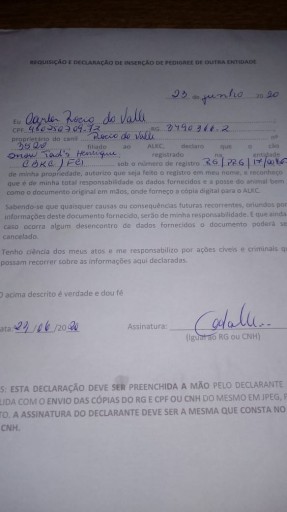 REQUISIÇÃO E DECLARAÇÃO DE INSERÇÃO DE PEDIGREE DE OUTRA ENTIDADE
23 de junho de 20
Eu, Rocio do Valle
CPF: RG:
proprietário do canil Rocio do Valle nº
filiado ao ALKC, declaro que o cão
registrado na entidade
CBKC / FCI sob o número de registro
de minha propriedade, autorizo que seja feito o registro em meu nome, e reconheço
que é de minha total responsabilidade os dados fornecidos e a posse do animal bem
como o documento original em mãos, onde forneço a cópia digital para o ALKC.
Sabendo-se que quaisquer causas ou consequências futuras recorrentes, oriundos por
informações deste documento fornecido, serão de minha responsabilidade. E que ainda
caso ocorra algum desencontro de dados fornecidos o documento poderá se
cancelado.
Tenho ciência dos meus atos e me responsabilizo por ações cíveis e criminais q
possam recorrer sobre as informações aqui declaradas.
O acima descrito é verdade e dou fé
ata: 23 /06 /2020 Assinatura:
(Igual ao RG ou CNH)
S: ESTA DECLARAÇÃO DEVE SER PREENCHIDA A MÃO PELO DECLARANTE
LIDA COM O ENVIO DAS CÓPIAS DO RG E CPF OU CNH DO MESMO EM JPEG, P
TO. A ASSINATURA DO DECLARANTE DEVE SER A MESMA QUE CONSTA NO
CNH.